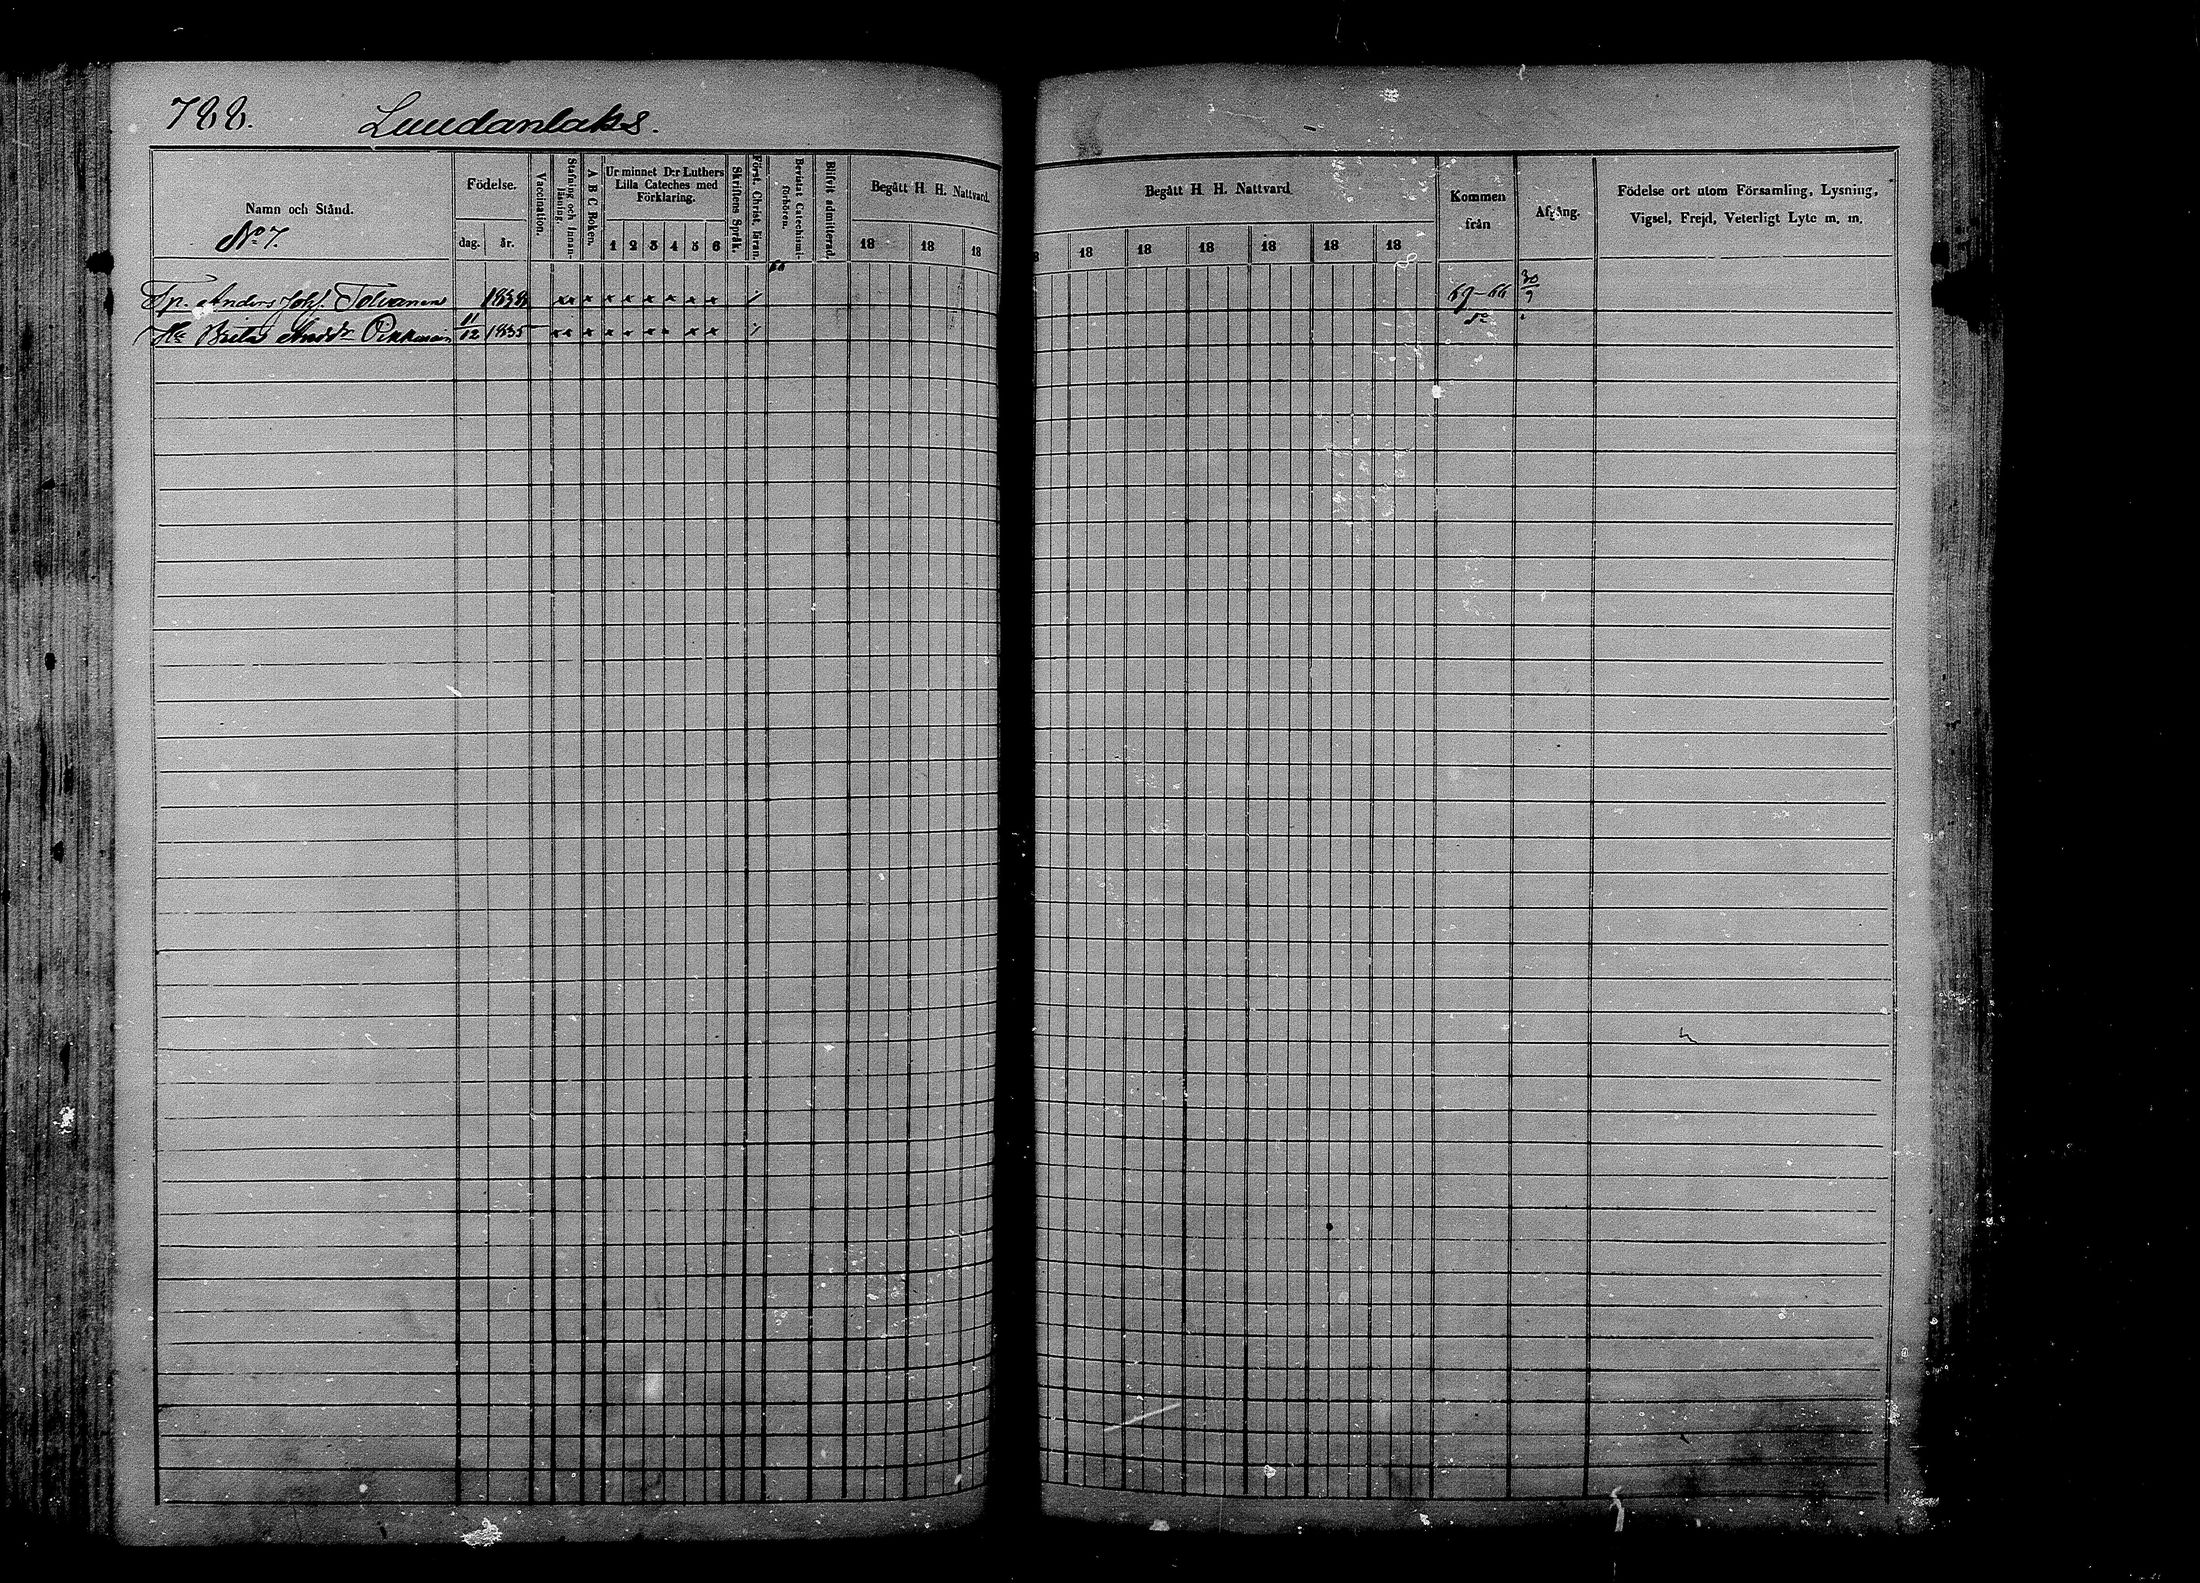 788. Luudanlaks.
Namn och Stånd.
No 7.
Födelse.
dag. år.
Vaccination.
Stafning och Innanläsning.
A B C Boken.
Ur minnet D:r Luthers
Lilla Cateches med
Förklaring.
1 2 3 4 5 6
Skriftens Språk.
Först. Christ. läran.
Bevistat Catechismiförhören.
Blifvit admitterad.
Begått H. H. Nattvard.
18 18 18
Begått H. H. Nattvard.
18 18 18 18 18 18
Kommen
från
Afgång.
Födelse ort utom Församling, Lysning,
Vigsel, Frejd, Veterligt Lyte m. m.
Sp. Anders Joh. Tolvanen 1838 xx x x x x x x x 67-66 30/9
Hu Brita Andsdr 11/12 1835 xx x x x x x x x do